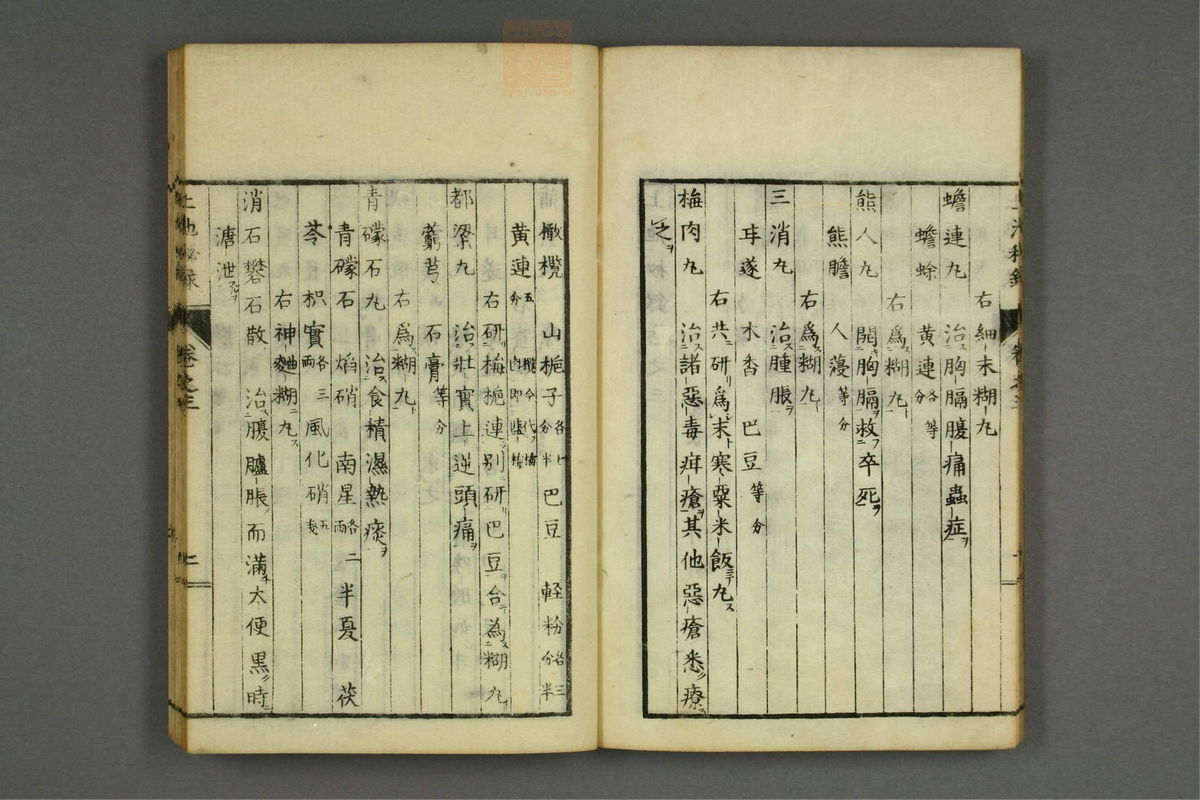 右細末糊丸
蟾連丸 治ス胸膈腹痛蟲症ヲ
蟾蜍 黄連各等分
右爲糊丸
熊人丸 開胸膈ヲ救フ卒死ヲ
熊膽 人葠等分
右爲糊丸
三消丸 治ス腫脹ヲ
耳遂 木香 巴豆等分
右共研爲末寒粟米飯丸ス
梅肉丸 治ス諸惡毒疳瘡ヲ其他惡瘡悉療ス
之ヲ
橄欖 山梔子各七分半 巴豆 軽粉各三分半
黄連五分
右研梅梔連別研巴豆合爲糊丸
都梁丸 治ス壯實上逆頭痛ヲ
藭芎 石膏等分
右爲糊丸
青礞石丸 治ス食積濕熱痰ヲ
青礞石 焔硝 南星各二両 半夏 茯
苓 枳實各三両 風化硝五戔
右神麯糊丸ス
消石礬石散 治ス腹臚脹而滿大便黒時
溏泄
上池秘録 卷之三